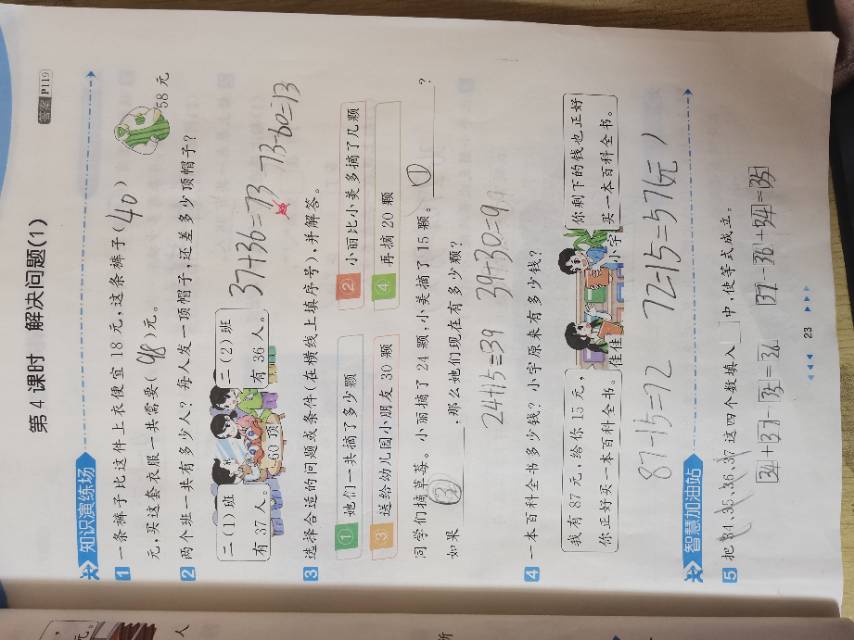 答案P119
第4课时 解决问题(1)
知识演练场
1 一条裤子比这件上衣便宜18元,这条裤子(40)
元,买这套衣服一共需要(98)元。
58元
2 两个班一共有多少人?每人发一顶帽子,还差多少顶帽子?
二(1)班
有37人。
60顶
二(2)班
有36人。
37+36=73 73-60=13
3 选择合适的问题或条件(在横线上填序号),并解答。
① 她们一共摘了多少颗
② 小丽比小美多摘了几颗
③ 送给幼儿园小朋友30颗
④ 再摘20颗
同学们摘草莓。小丽摘了24颗,小美摘了15颗。 ① ?
如果 ③ ,那么她们现在有多少颗?
24+15=39 39+30=9
4 一本百科全书多少钱?小宇原来有多少钱?
我有87元,给你15元,
你正好买一本百科全书。
佳佳
小宇
你剩下的钱也正好
买一本百科全书。
87-15=72 72-15=57(元)
智慧加油站
5 把34、35、36、37这四个数填入 中,使等式成立。
34+37-35=36 37-36+34=35
23